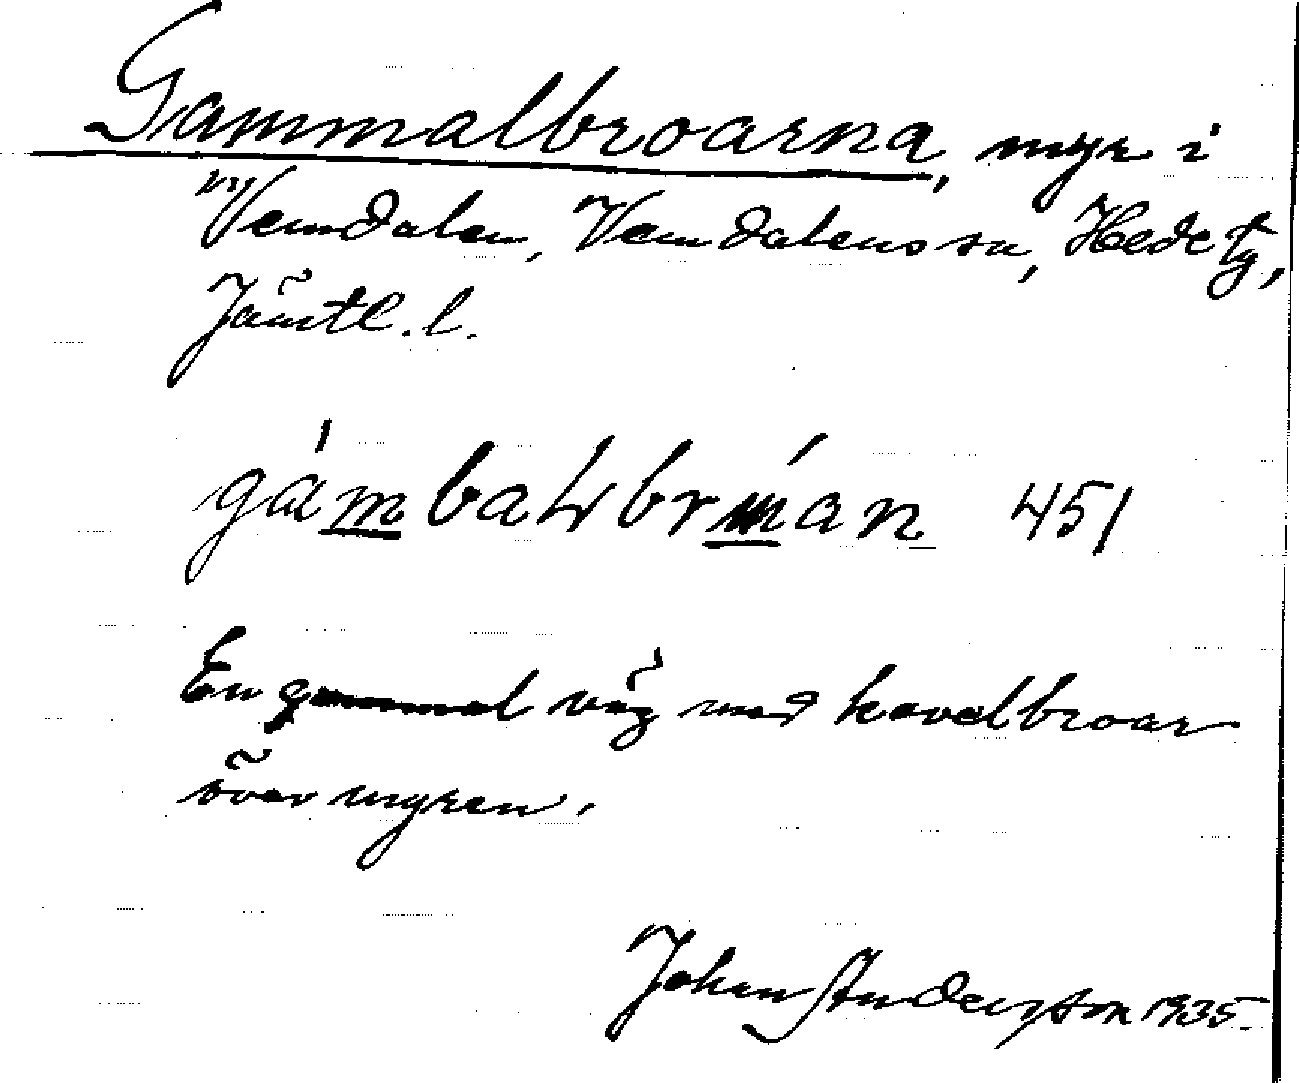 Gammalbroarna, myr i
Vemdalen, Vemdalens sn, Hede tg,
Jämtl. l.
451
En gammal väg med kavelbroar
över myren.
Johan Anderson 1935.